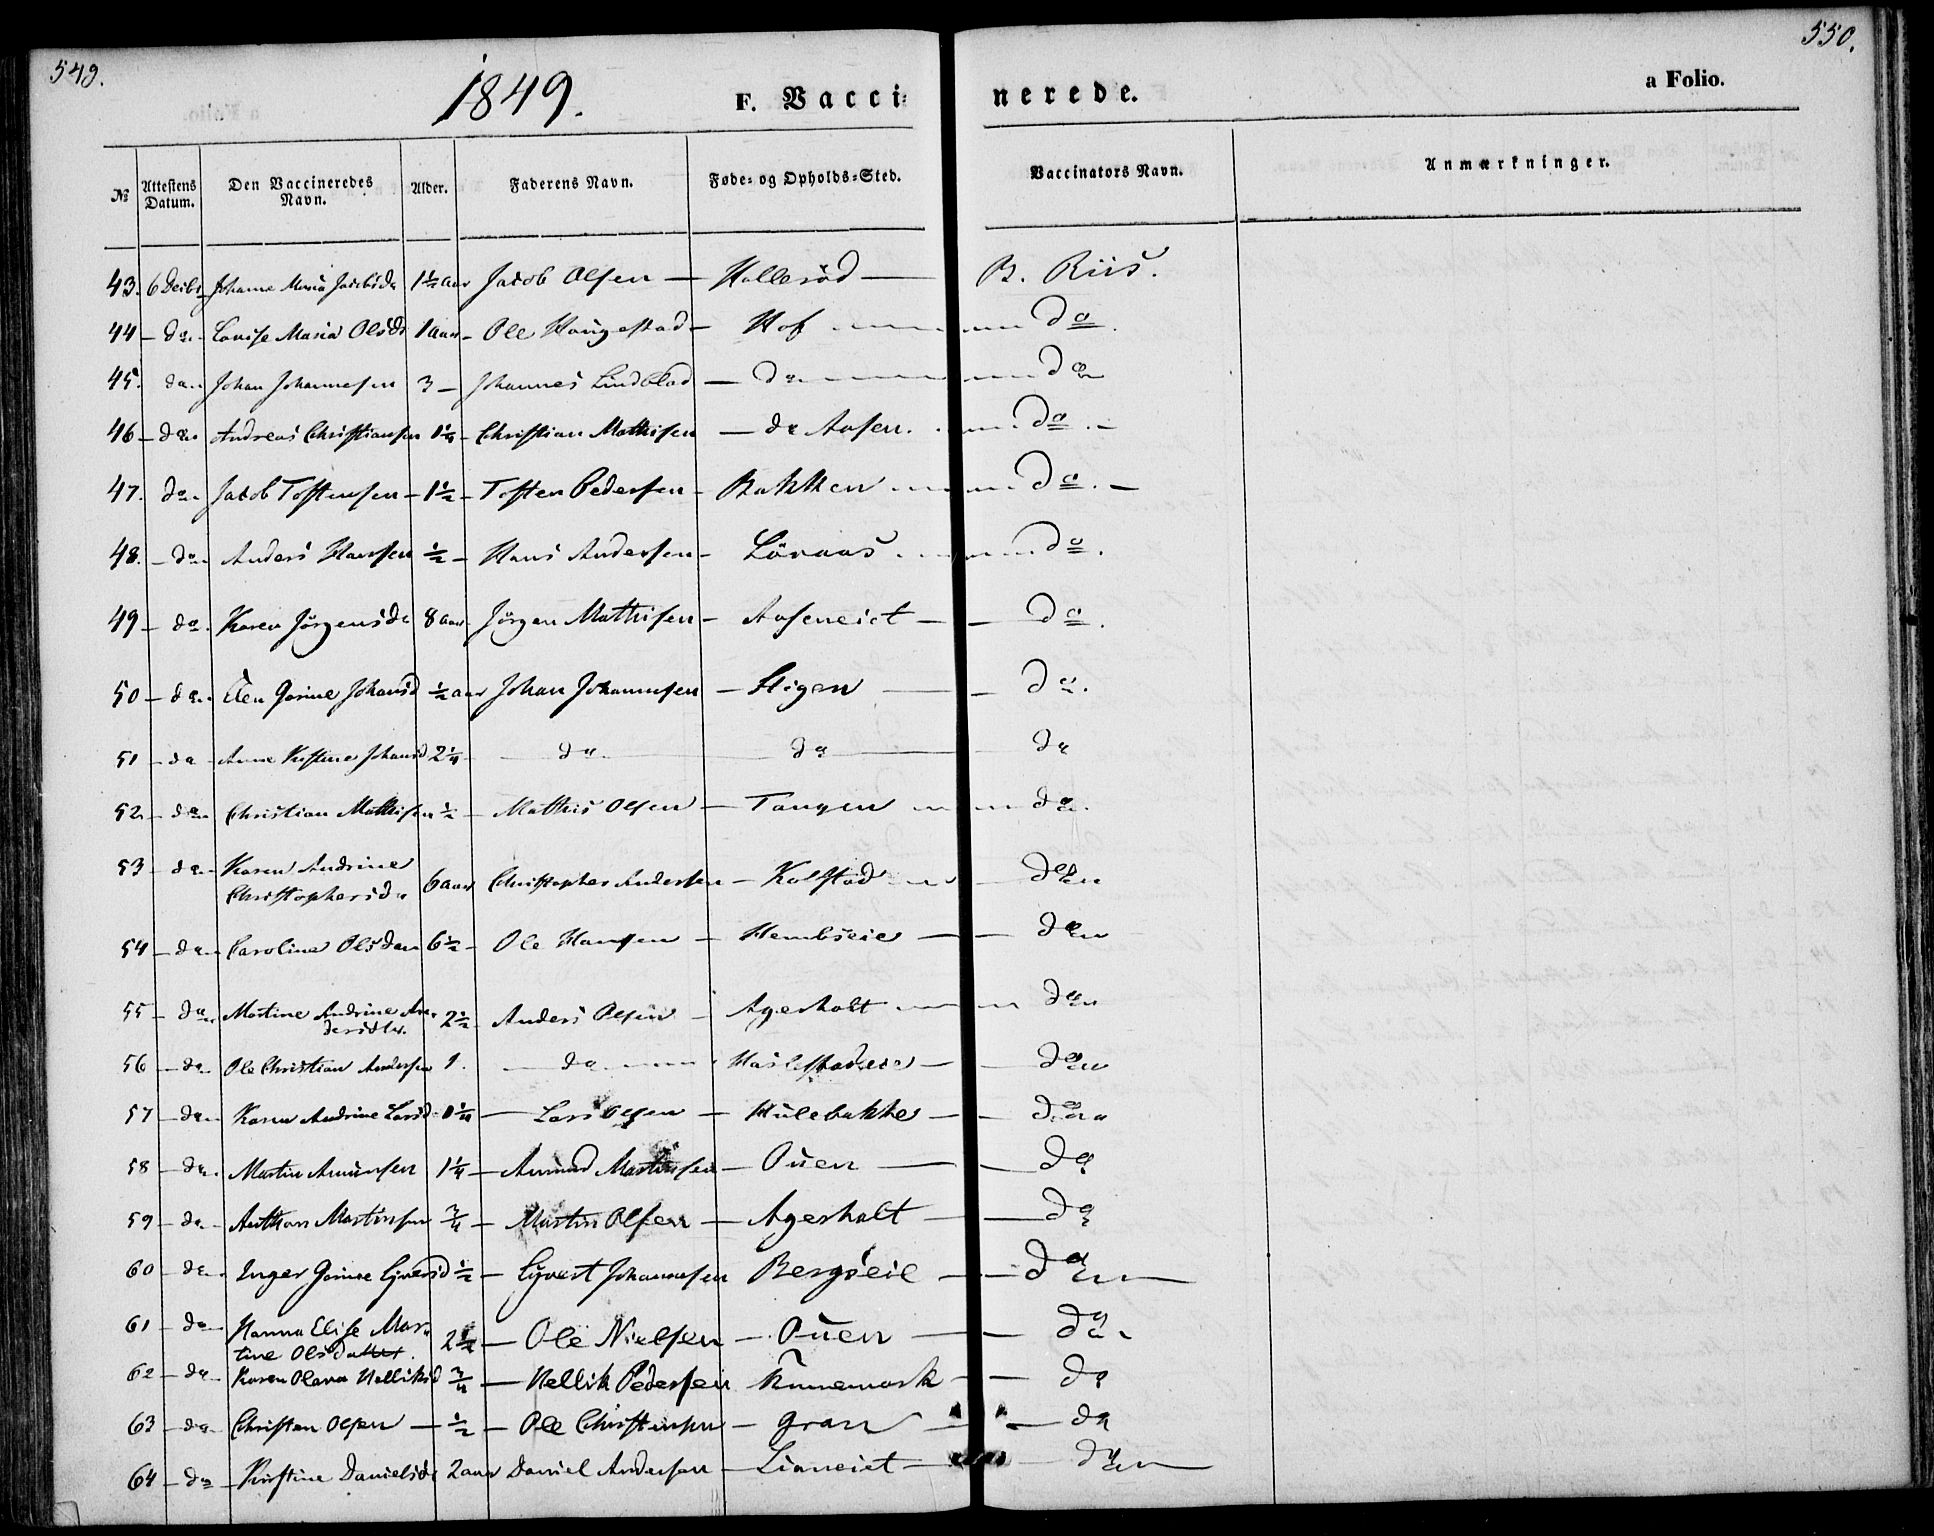 549.
550.
1849.
F. Vacci-
nerede.
a Folio.
№ Attestens Datum. Den Vaccineredes Navn. Alder. Faderens Navn. Føde- og Opholds-Sted. Vaccinators Navn. Anmærkninger.
43. 6 Jacob Olsen — Hallesöd — B. Riis.
44 — do. Lovise Maria Olsdr 1 aar — Ole Haugestad — Hof do.
45. do. Johan Johannesen 3 — Johannes Lindblad — do do
46 — do. Andreas Christiansen 1¼ — Christian Mathisen — do Aasen. do. —
47. do. Jacob Toftensen — 1½ — Toften Pedersen — Bakken do. —
48. — do. Anders Hansen ½ — Hans Andersen — Lövaas do.
49 — do. Karen Jörgensdr 8 aar Jörgen Mathisen — Aaseneiet — — do.
50 — do. Elen Gorine Johansd ½ aar Johan Johannesen — Stigen — do.
51 — do Anne Kistine Johansd 2¼ — do — do — do
52. — do. Christian Mathisen ½ — Mathis Olsen — Tangen do.
53 — do. Karen Andrine
Christophersdr 6 aar Christopher Andersen — Kolstad — do
54 — do. Caroline Olsdr 6½ — Ole Hansen — Hembseie — — do
55 — do. Martine Andrine An-
dersdtr. 2½ Anders Olsen — Agerholt do
56 — do. Ole Christian Andersen 1. — do Haslestadeie — — do
57 — do. Karen Andrine Larsd 1¼ — Lars Olsen — Hulebakke — — do
58 — do. Martin Amunsen 1¼ — Amund Martinsen — Ouen — — do
59 — do. Anthon Martinsen ¾ — Martin Olsen — Agerholt — do
60 — do. Inger Gorine Ejversd ½ — Ejvert Johannesen Bergseie — do
61 — do Hanna Elise Mar-
tine Olsdatter. 2½ — Ole Nielsen — Ouen — — do.
62 — do. Karen Olava Hellikd ¾ — Hellik Pedersen Kunemark — do
63 — do. Christen Olsen — ½ — Ole Christensen — Gran — do
64 — do — Kirstine Danielsdr 2 aar Daniel Andersen — Lianeiet — do